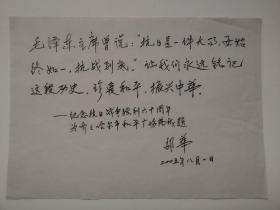 毛泽东主席曾说："抗日是一件大事，要始
终如一，抗战到底。"让我们永远铭记
这段历史，珍爱和平，振兴中华。
——纪念抗日战争胜利六十周年
为齐齐哈尔市和平广场落成题
胡华
二〇〇五年八月一日